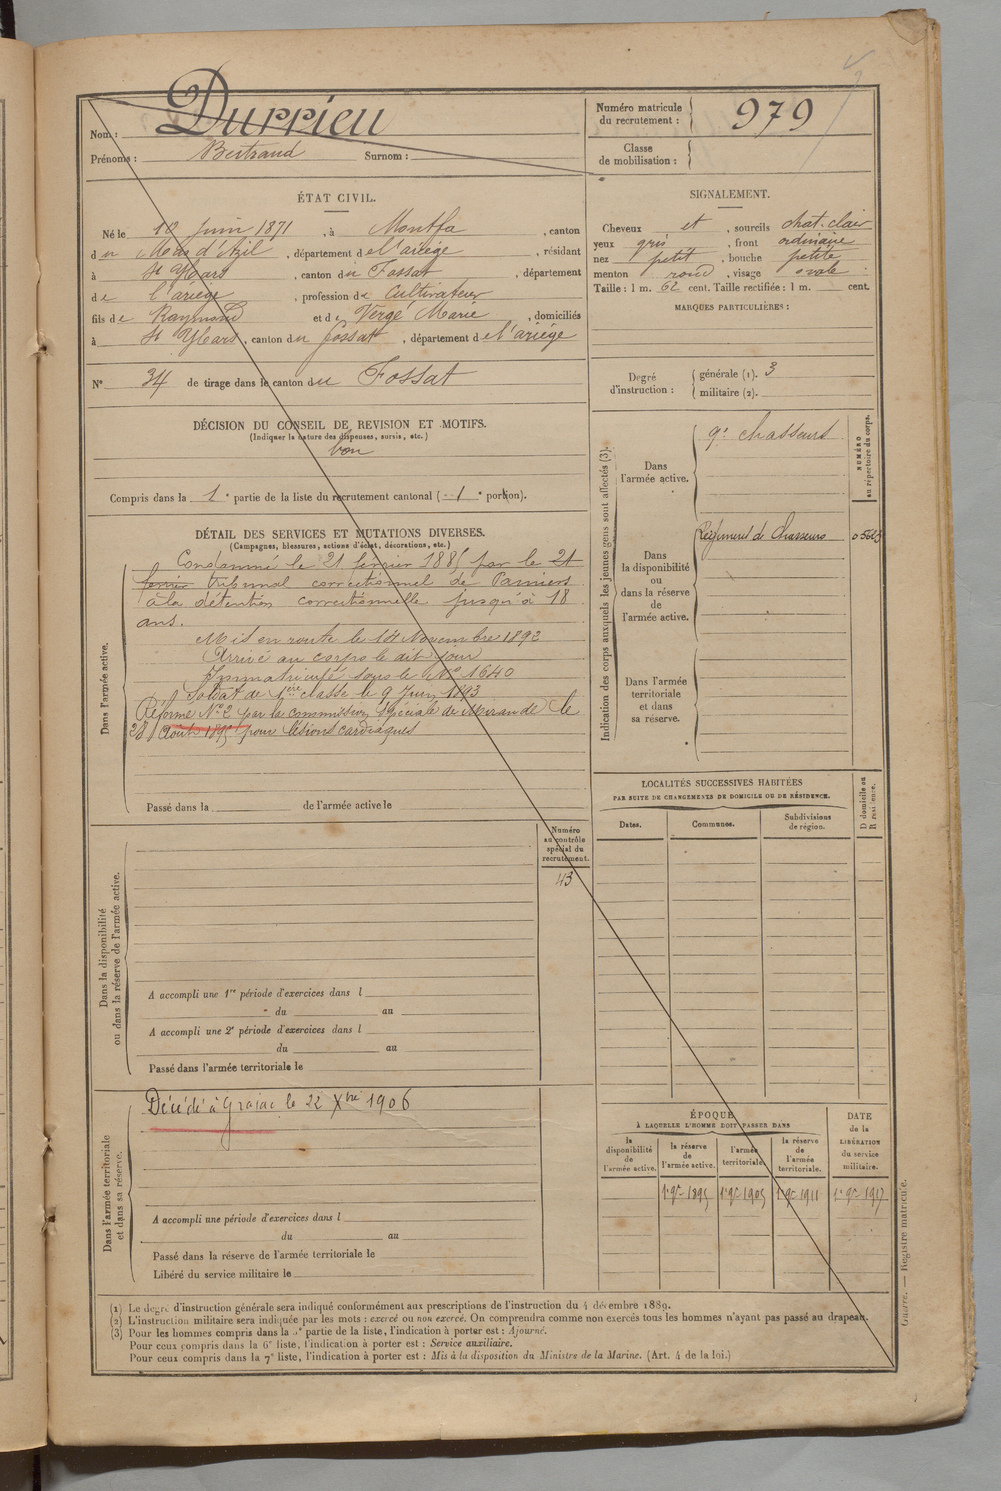 Nom : Durrieu
Prénoms : Bertrand Surnom :
Numéro matricule du recrutement : 979
Classe de mobilisation :
ÉTAT CIVIL.
Né le 10 juin 1871, à Montfa, canton
du Mas d'Azil, département de l'ariège, résidant
à St Ybars, canton du Fossat, département
de l'ariège, profession de Cultivateur
fils de Raymond et de Verge Marie, domiciliés
à St Ybars, canton du Fossat, département de l'ariège
N° 34 de tirage dans le canton du Fossat
SIGNALEMENT.
Cheveux et, sourcils chat. clair
yeux gris, front ordinaire
nez petit, bouche petite
menton rond, visage ovale
Taille : 1 m. 62 cent. Taille rectifiée : 1 m. cent.
MARQUES PARTICULIÈRES :
Degré d'instruction : générale (1). 3
militaire (2).
DÉCISION DU CONSEIL DE REVISION ET MOTIFS.
(Indiquer la nature des dispenses, sursis, etc.)
bon
Compris dans la 1e partie de la liste du recrutement cantonal ( 1e portion).
DÉTAIL DES SERVICES ET MUTATIONS DIVERSES.
(Campagnes, blessures, actions d'éclat, décorations, etc.)
Dans l'armée active.
Condamné le 21 février 1885 par le 21
février tribunal correctionnel de Pamiers
à la détention correctionnelle jusqu'à 18
ans.
Mis en route le 14 Novembre 1892
Arrivé au corps le dit jour
Immatriculé sous le N° 1640
Soldat de 1ère classe le 9 Juin 1893
Réformé N° 2 par la commission spéciale de Mirande le
28 Août 1895 pour lésions cardiaques
Passé dans la de l'armée active le
Indication des corps auxquels les jeunes gens sont affectés (3).
NUMÉRO au répertoire du corps.
Dans l'armée active.
9e chasseurs
Dans la disponibilité ou dans la réserve de l'armée active.
Régiment de Chasseurs
Dans l'armée territoriale et dans sa réserve.
LOCALITÉS SUCCESSIVES HABITÉES
PAR SUITE DE CHANGEMENTS DE DOMICILE OU DE RÉSIDENCE.
Dates. Communes. Subdivisions de région.
D domicile ou R résidence.
Numéro au contrôle spécial du recrutement.
43
Dans la disponibilité ou dans la réserve de l'armée active.
A accompli une 1re période d'exercices dans l
du au
A accompli une 2e période d'exercices dans l
du au
Passé dans l'armée territoriale le
Dans l'armée territoriale et dans sa réserve.
Décédé à Grazac le 22 Xbre 1906
A accompli une période d'exercices dans l
du au
Passé dans la réserve de l'armée territoriale le
Libéré du service militaire le
ÉPOQUE
À LAQUELLE L'HOMME DOIT PASSER DANS
DATE de la LIBÉRATION du service militaire.
la disponibilité de l'armée active.
la réserve de l'armée active.
l'armée territoriale.
la réserve de l'armée territoriale.
1er 9bre 1895 1er 9bre 1905 1er 9bre 1911 1er 9bre 1917
(1) Le degré d'instruction générale sera indiqué conformément aux prescriptions de l'instruction du 4 décembre 1889.
(2) L'instruction militaire sera indiquée par les mots : exercé ou non exercé. On comprendra comme non exercés tous les hommes n'ayant pas passé au drapeau.
(3) Pour les hommes compris dans la 3e partie de la liste, l'indication à porter est : Ajourné.
Pour ceux compris dans la 6e liste, l'indication à porter est : Service auxiliaire.
Pour ceux compris dans la 7e liste, l'indication à porter est : Mis à la disposition du Ministre de la Marine. (Art. 4 de la loi.)
Guerre. — Registre matricule.